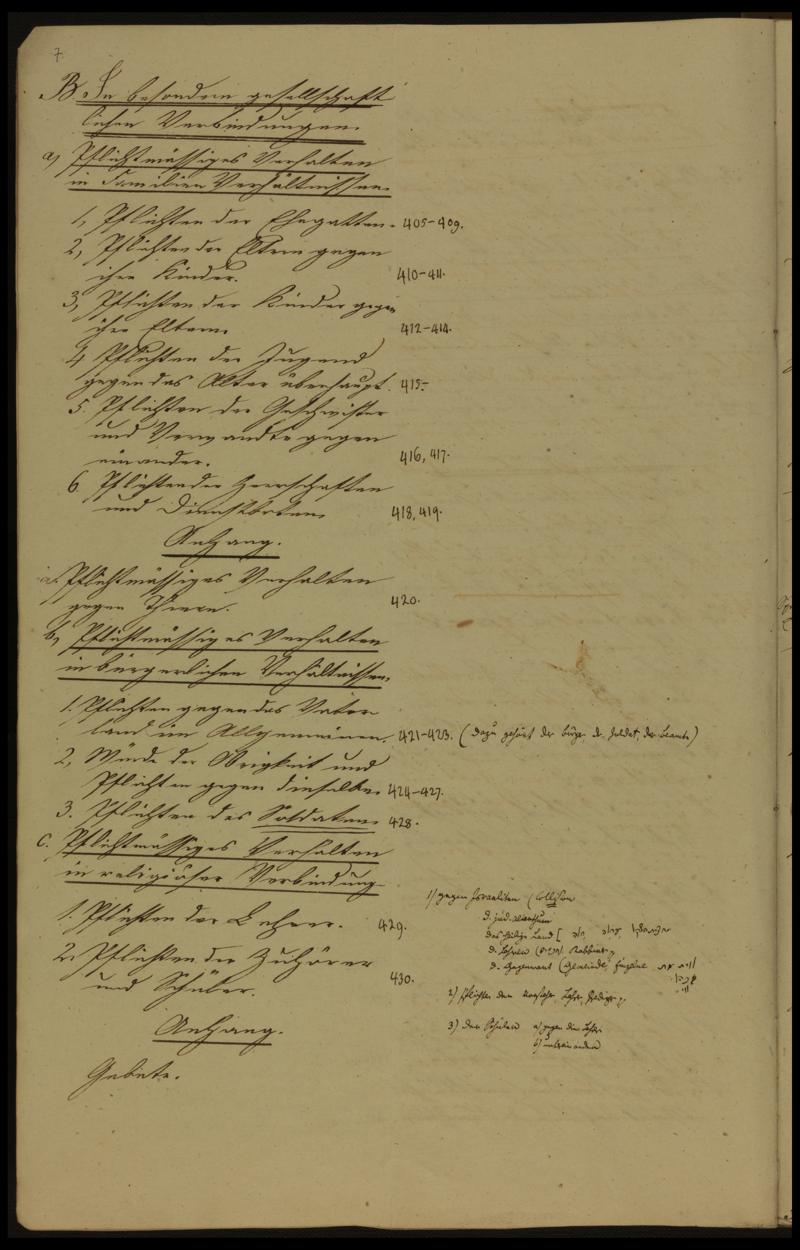 7.
B. In besondern gesellschaft
lichen Verbindungen.
a) Pflichtmässiges Verhalten
in Familien Verhältnissen.
1, Pflichten der Ehegatten. 405-409.
2, Pflichten der Eltern gegen
ihre Kinder. 410-411.
3, Pflichten der Kinder gegen
ihre Eltern. 412-414.
4 Pflichten der Jugend
gegen das Alter überhaupt. 415.-
5. Pflichten der Geschwister
und Verwandte gegen
einander. 416, 417.
6 Pflichten der Herrschaften
und Dienstboten. 418, 419.
Anhang.
Pflichtmässiges Verhalten
gegen Thiere. 420.
b, Pflichtmässiges Verhalten
in bürgerlichen Verhältnissen.
1. Pflichten gegen das Vater
land im Allgemeinen. 421-423. (dazu gehört der Bürger der Soldat, der Beamte)
2, Würde der Obrigkeit und
Pflichten gegen dieselbe. 424-427.
3. Pflichten des Soldaten. 428.
c. Pflichtmässiges Verhalten
in religiöser Verbindung.
1. Pflichten der Lehrer. 429.
2. Pflichten der Zuhörer
und Schüler. 430.
Anhang.
Gebete.
1) gegen Israeliten (Collision
d. jüd. Alterthum
das heilige Land [
d. Lehren Rabbiner
d. Gegenwart (Gemeinde,
2) Pflichten Lehrer, Prediger
3) der Schüler a) gegen die Lehrer
b) untereinander